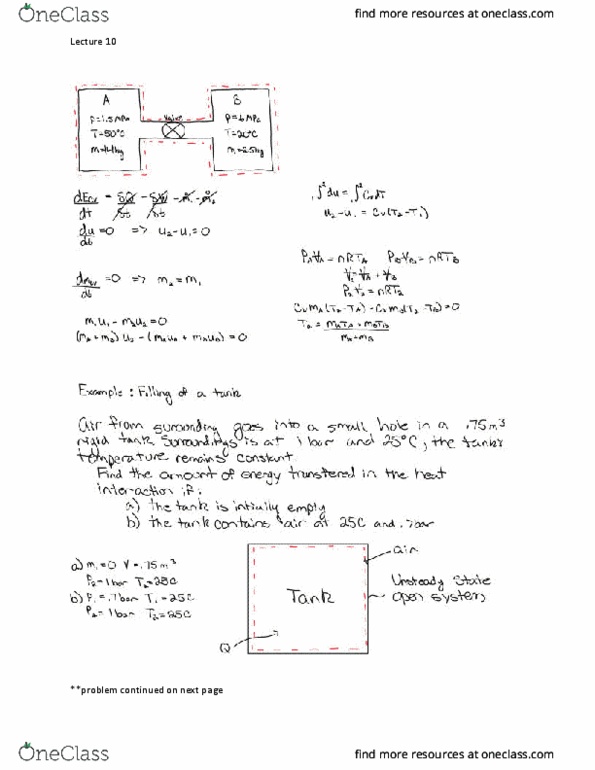 OneClass
find more resources at oneclass.com
Lecture 10
A
B
Valve
P=1.5MPa
T=50°C
T=20°C
dEcv = δQ - δW - m₁ - m₂
dt δt δt
du =0 => u₂-u₁=0
dt
∫²du = ∫²CvdT
u₂-u₁ = Cv(T₂-T₁)
dmcv =0 => m₂=m₁
dt
PAVA=nRTA PBVB=nRTB
V₂=VA+VB
P₂V₂=nRT₂
m₁u₁-m₂u₂=0
(mA+mB)u₂-(mAuA+mBuB)=0
CvmA(T₂-TA)-CvmB(T₂-TB)=0
T₂ = mATA+mBTB
mA+mB
Example: Filling of a tank
Air from surrounding goes into a small hole in a .75m³
rigid tank. Surroundings is at 1 bar and 25°C, the tank's
temperature remains constant.
Find the amount of energy transfered in the heat
interaction if:
a) the tank is intiully empty
b) the tank contains air at 25C and .7bar
a) m₁=0 V=.75m³
P₂=1bar T₂=25C
b) P₁=.7bar T₁=25C
P₂=1bar T₂=25C
Tank
air
Unsteady State
open system
Q
**problem continued on next page
OneClass
find more resources at oneclass.com